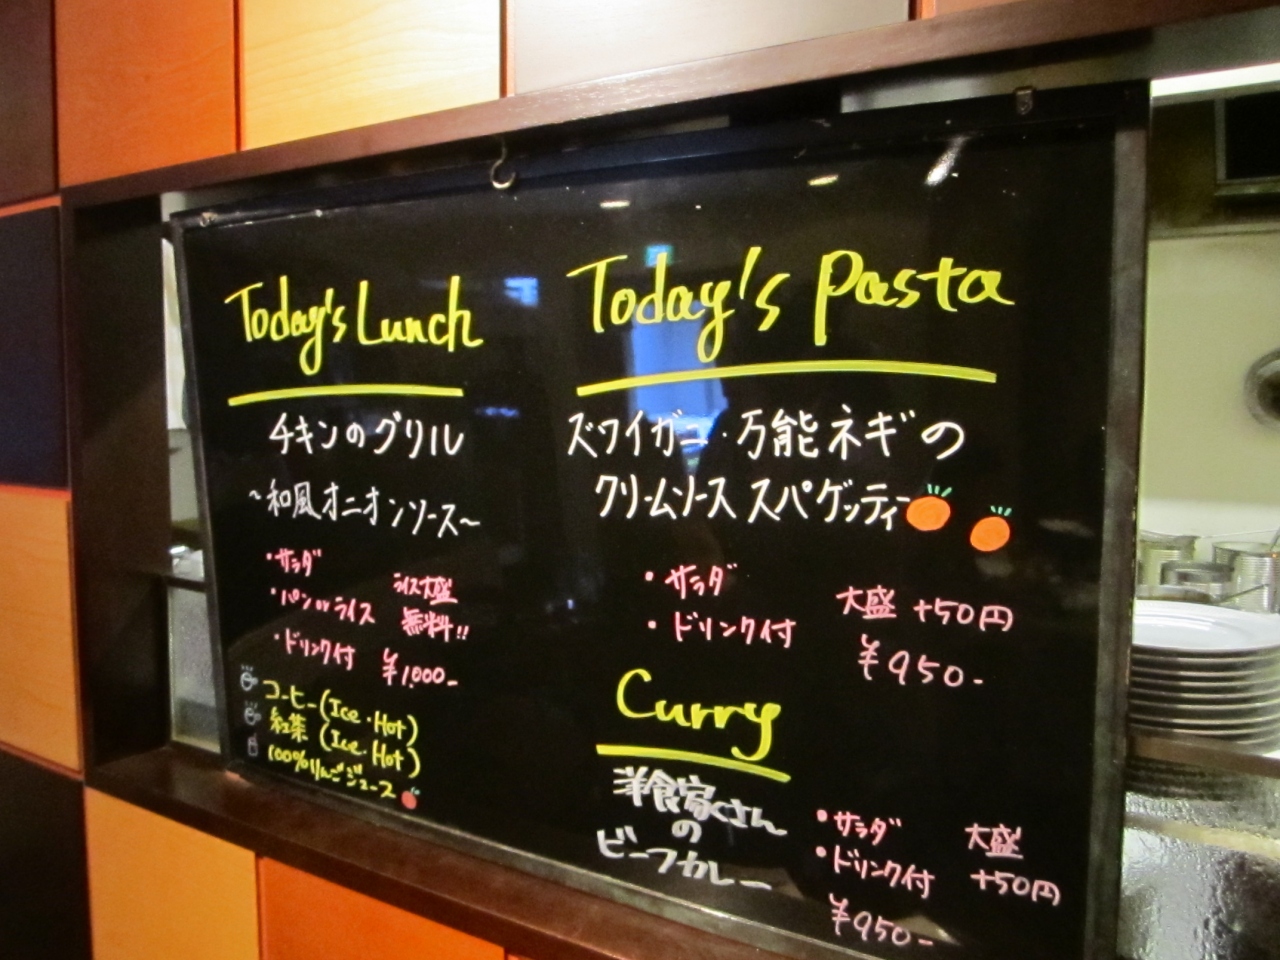 Today's Lunch
チキンのグリル
~和風オニオンソース~
・サラダ
・パン or ライス
・ドリンク付
ライス大盛
無料!!
¥1,000-
コーヒー(Ice・Hot)
紅茶 (Ice・Hot)
100%りんごジュース
Today's Pasta
ズワイガニ・万能ネギの
クリームソース スパゲッティー
・サラダ
・ドリンク付
大盛 +50円
¥950-
Curry
洋食家くさん
の
ビーフカレー
・サラダ
・ドリンク付
大盛
+50円
¥950-